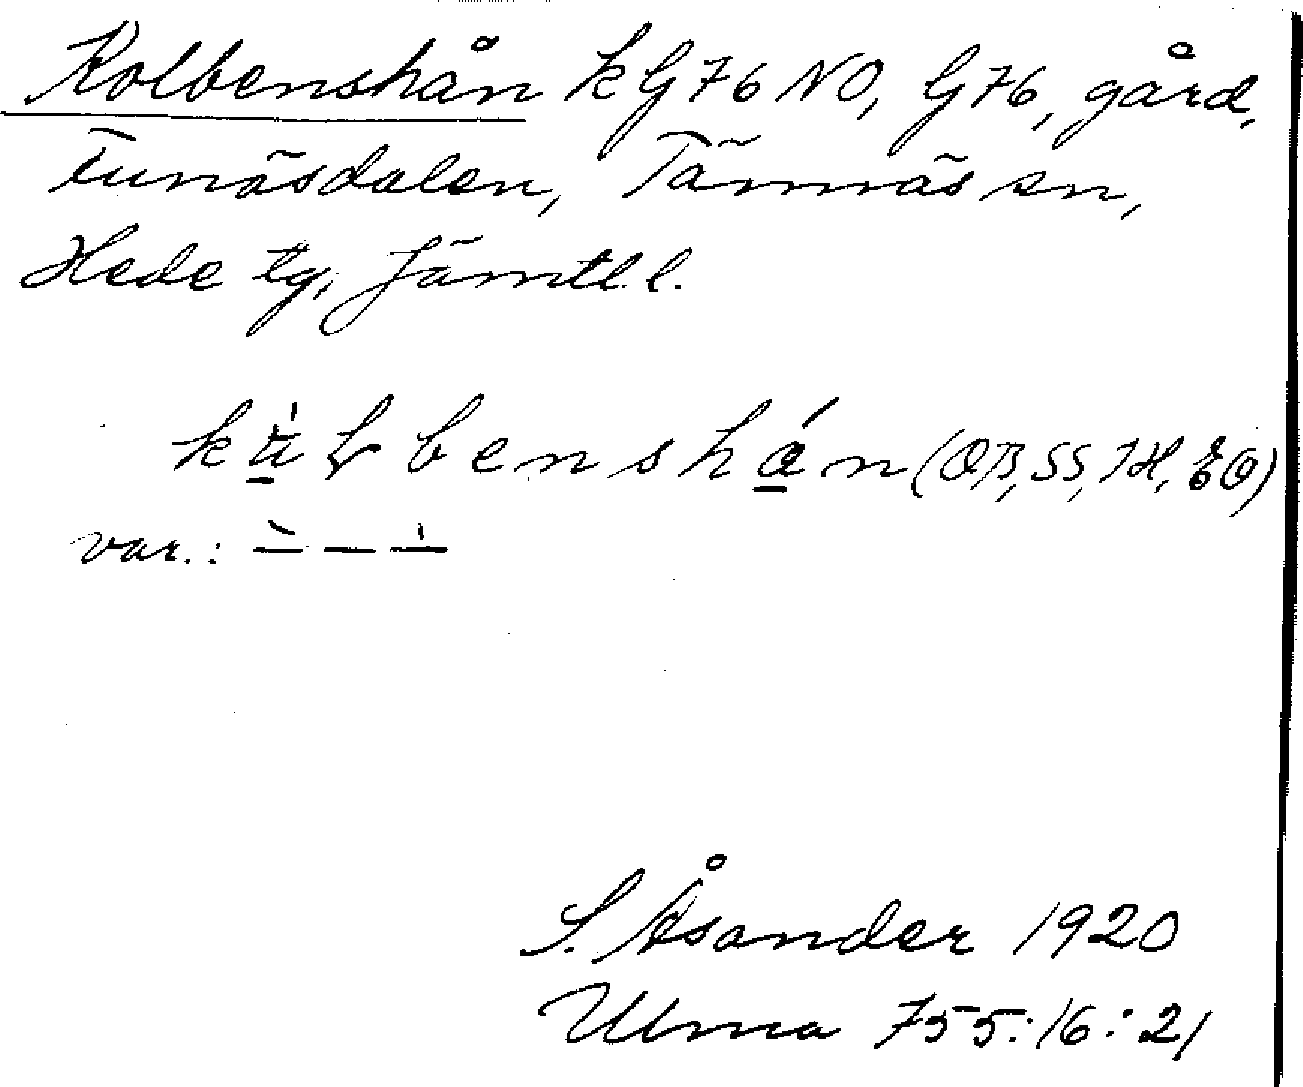 Kolbenshån kG76NO, G76, gård,
Funäsdalen, Tännäs sn,
Hede tg, Jämtl. l.
benshán (OB, SS, JH, EO)
var.:
S. Åsander 1920
Ulma 755:16:21